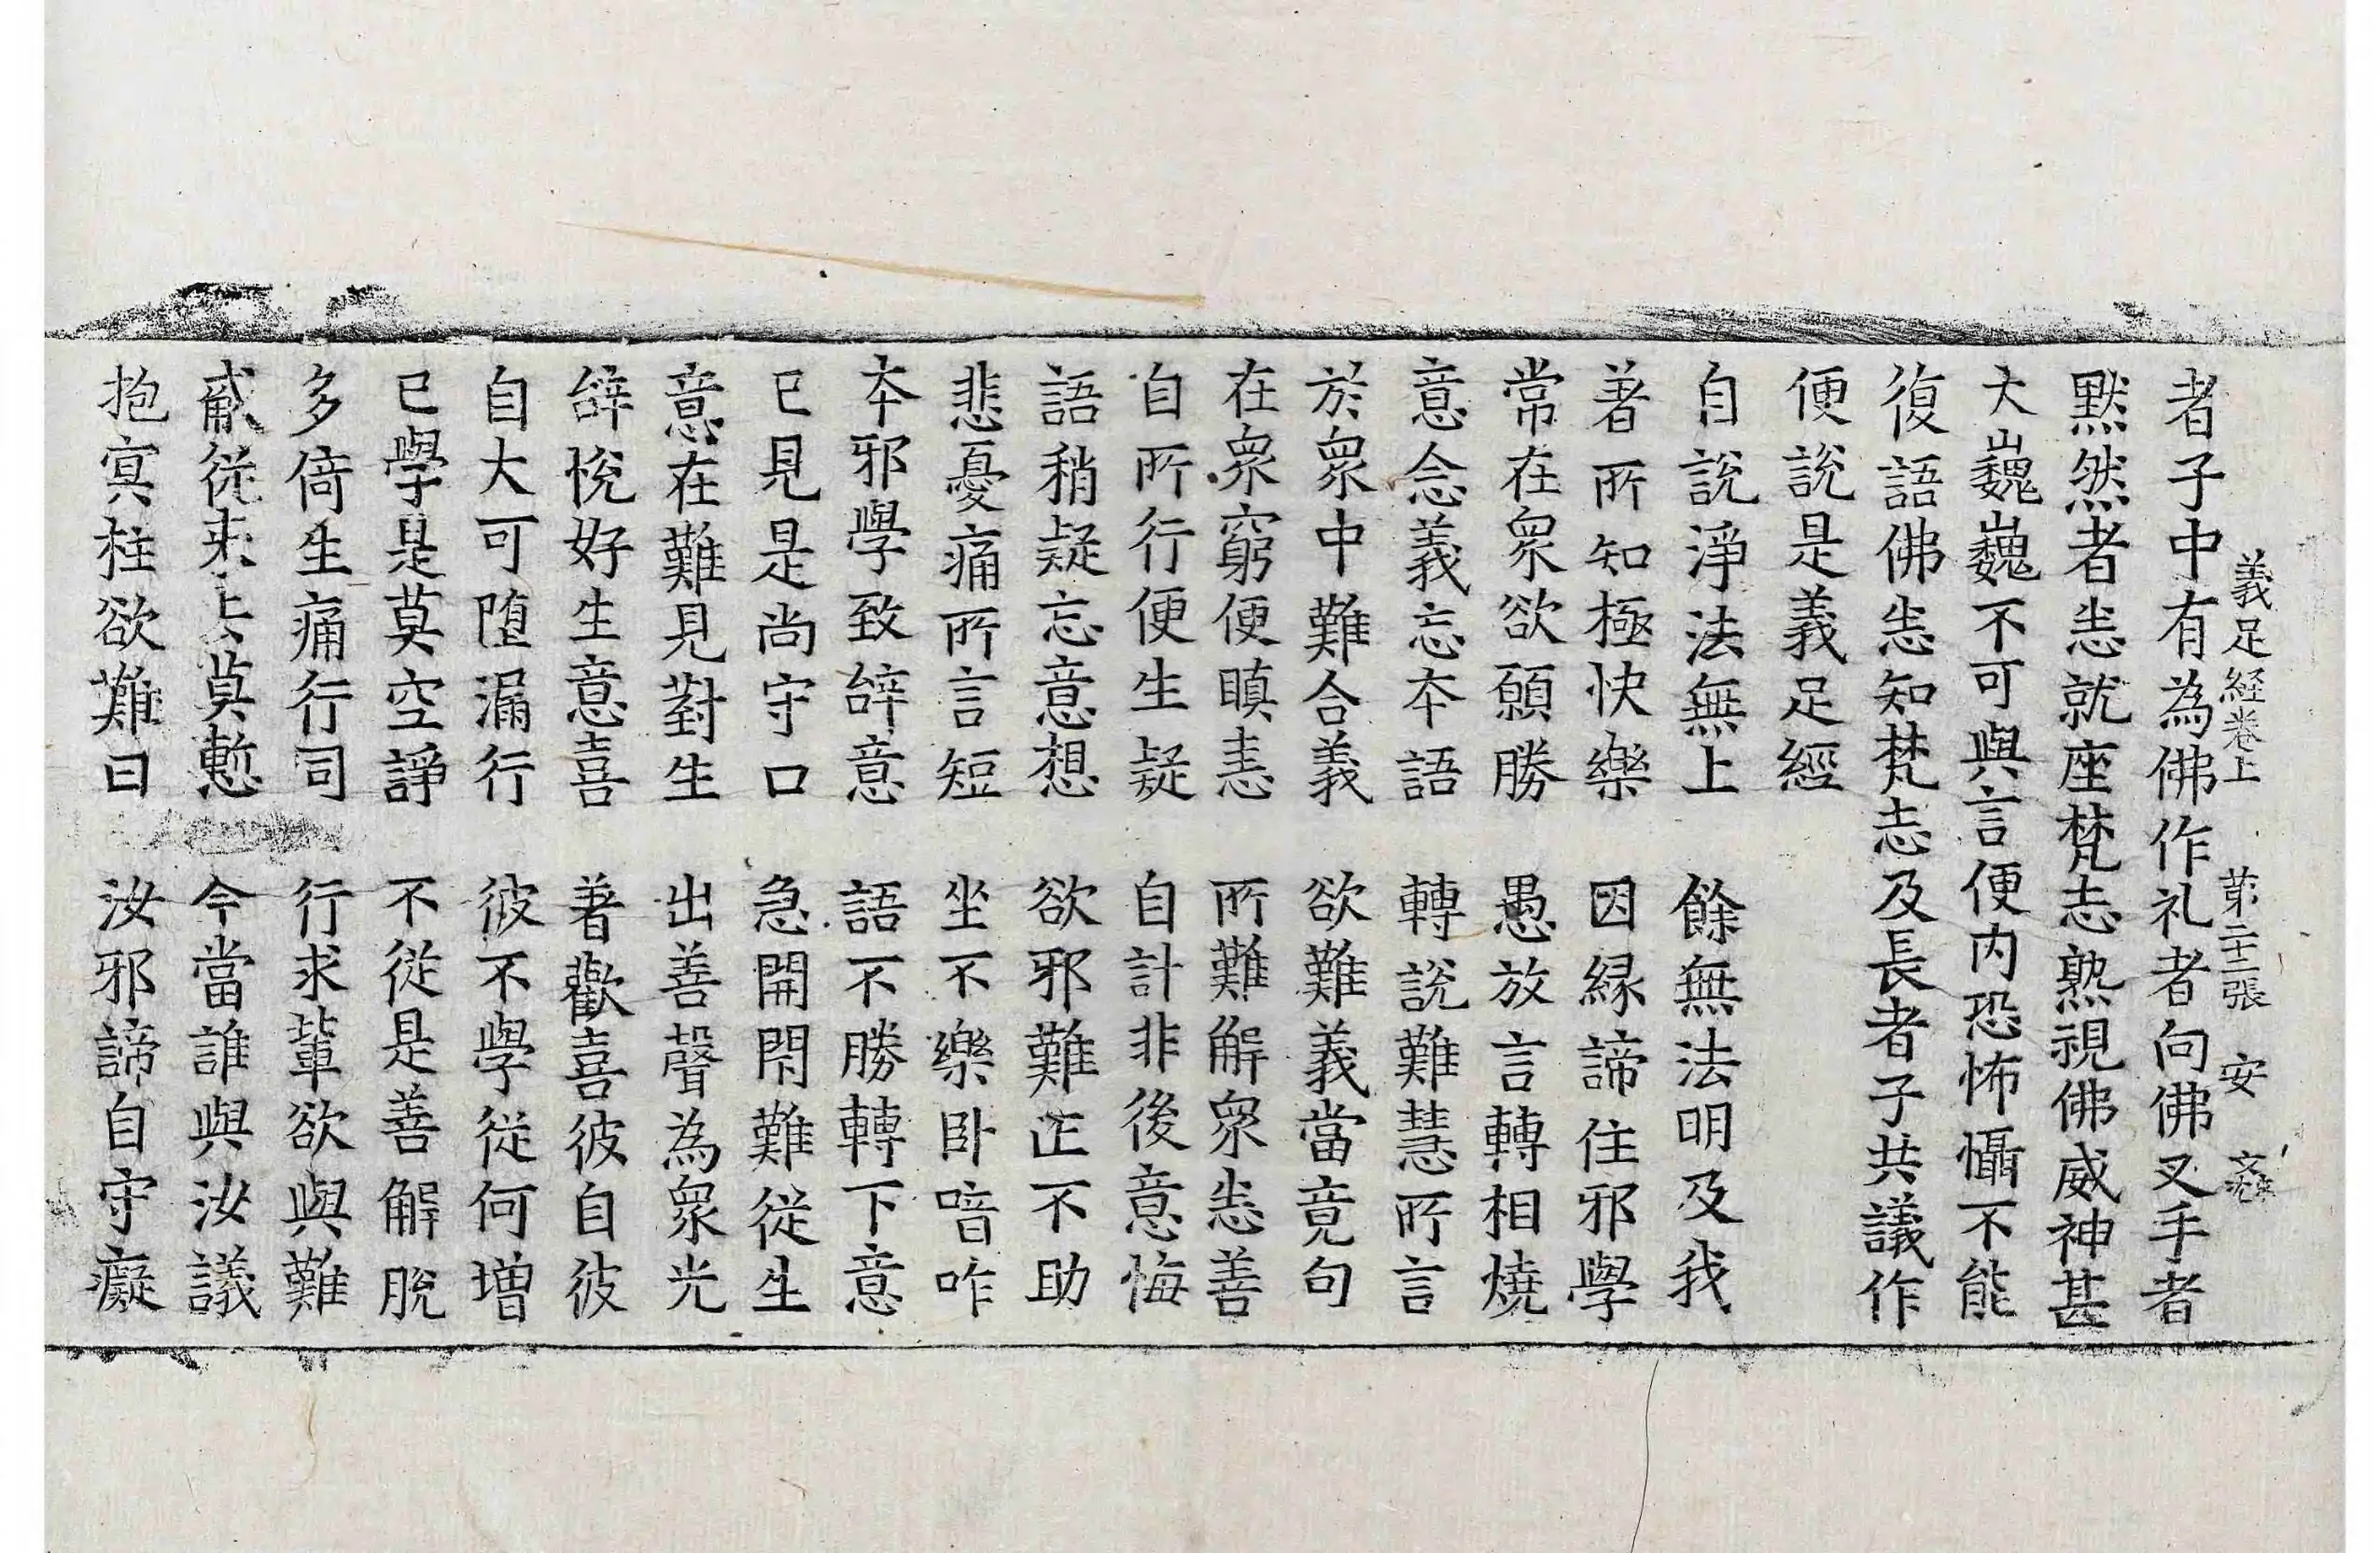 義足経卷上 第二十二張 安
者子中有為佛作礼者向佛叉手者
默然者恚就座梵志熟視佛威神甚
大巍巍不可與言便内恐怖懾不能
復語佛恚知梵志及長者子共議作
便說是義足經
自說淨法無上 餘無法明及我
著所知極快樂 因緣諦住邪學
常在衆欲願勝 愚放言轉相燒
意念義忘本語 轉說難慧所言
於衆中難合義 欲難義當竟句
在衆窮便瞋恚 所難解衆恚善
自所行便生疑 自計非後意悔
語稍疑忘意想 欲邪難正不助
悲憂痛所言短 坐不樂卧喑咋
本邪學致辭意 語不勝轉下意
已見是尚守口 急開閇難從生
意在難見對生 出善聲為衆光
辭悅好生意喜 著歡喜彼自彼
自大可墮漏行 彼不學從何增
已學是莫空諍 不從是善解脫
多倚生痛行司 行求輩欲與難
從來上莫慙 今當誰與汝議
抱冥柱欲難曰 汝邪諦自守癡